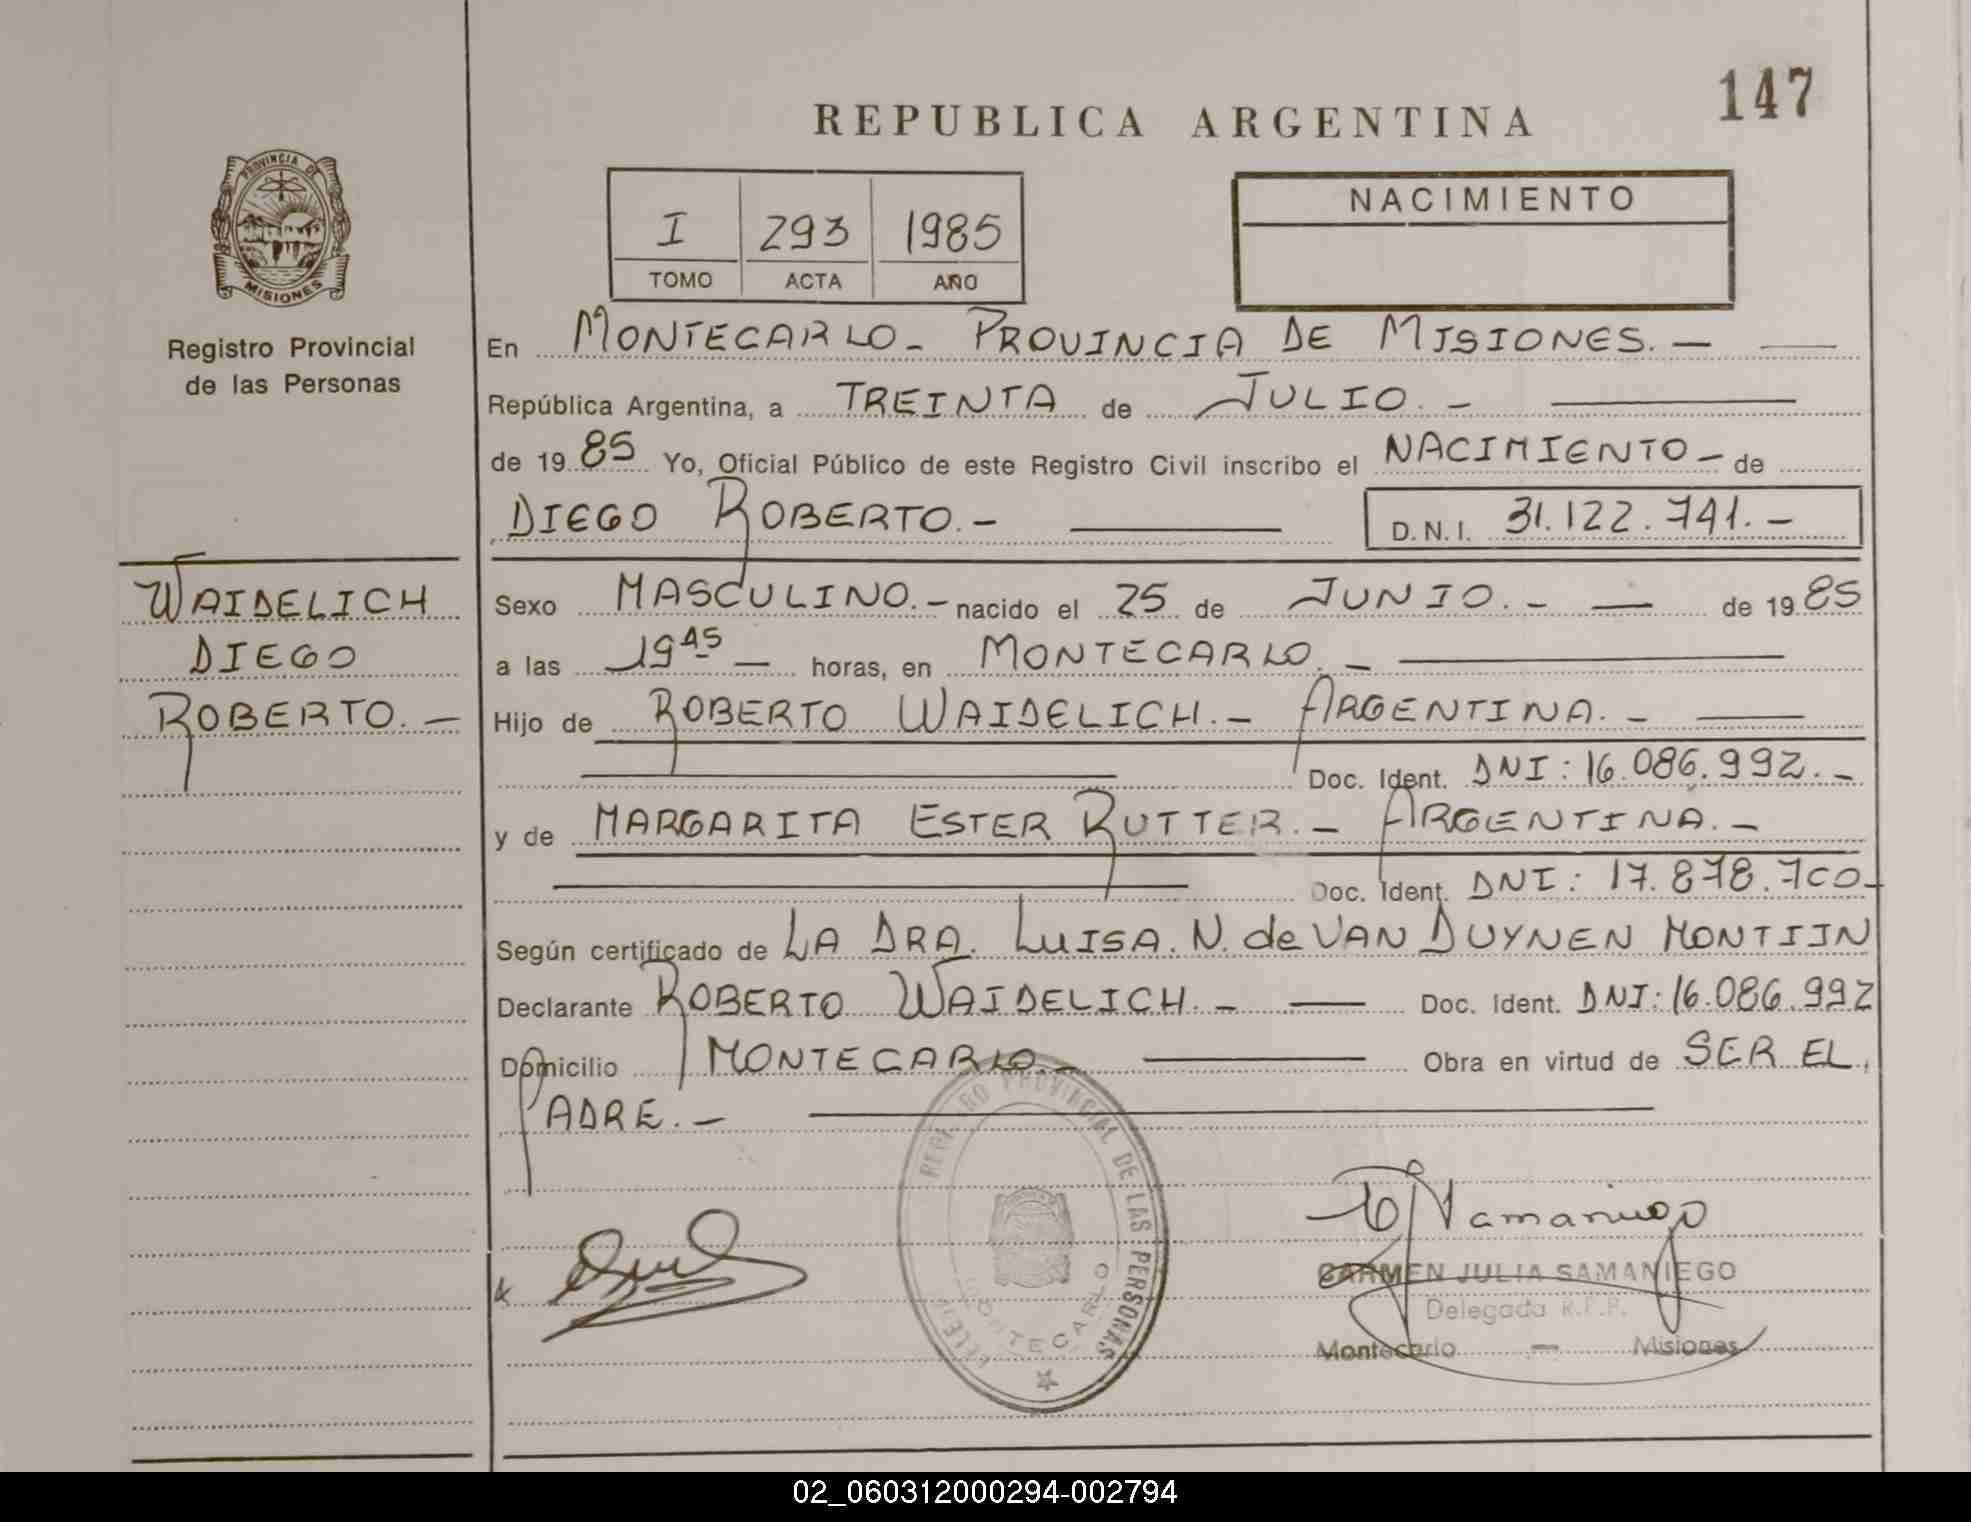 147
REPUBLICA ARGENTINA
PROVINCIA DE
MISIONES
Registro Provincial
de las Personas
I 293 1985
TOMO ACTA AÑO
NACIMIENTO
En MONTECARLO - PROVINCIA DE MISIONES. —
República Argentina, a TREINTA de JULIO. -
de 19 85 Yo, Oficial Público de este Registro Civil inscribo el NACIMIENTO - de
DIEGO ROBERTO. - D.N.I. 31.122.741. -
WAIDELICH
DIEGO
ROBERTO. —
Sexo MASCULINO. - nacido el 25 de JUNIO. - — de 19 85
a las 19 45 — horas, en MONTECARLO. -
Hijo de ROBERTO WAIDELICH. - ARGENTINA. -
Doc. Ident. DNI: 16.086.992. -
y de MARGARITA ESTER RUTTER. - ARGENTINA. -
Doc. Ident. DNI: 17.878.700 -
Según certificado de LA DRA. LUISA. N. de VAN DUYNEN MONTIJN
Declarante ROBERTO WAIDELICH. - — Doc. Ident. DNI: 16.086.992
Domicilio MONTECARLO. - Obra en virtud de SER EL
PADRE. -
REGISTRO PROVINCIAL DE LAS PERSONAS
MONTECARLO
Samaniego
CARMEN JULIA SAMANIEGO
Delegada R.P.P.
Montecarlo — Misiones
02_060312000294-002794